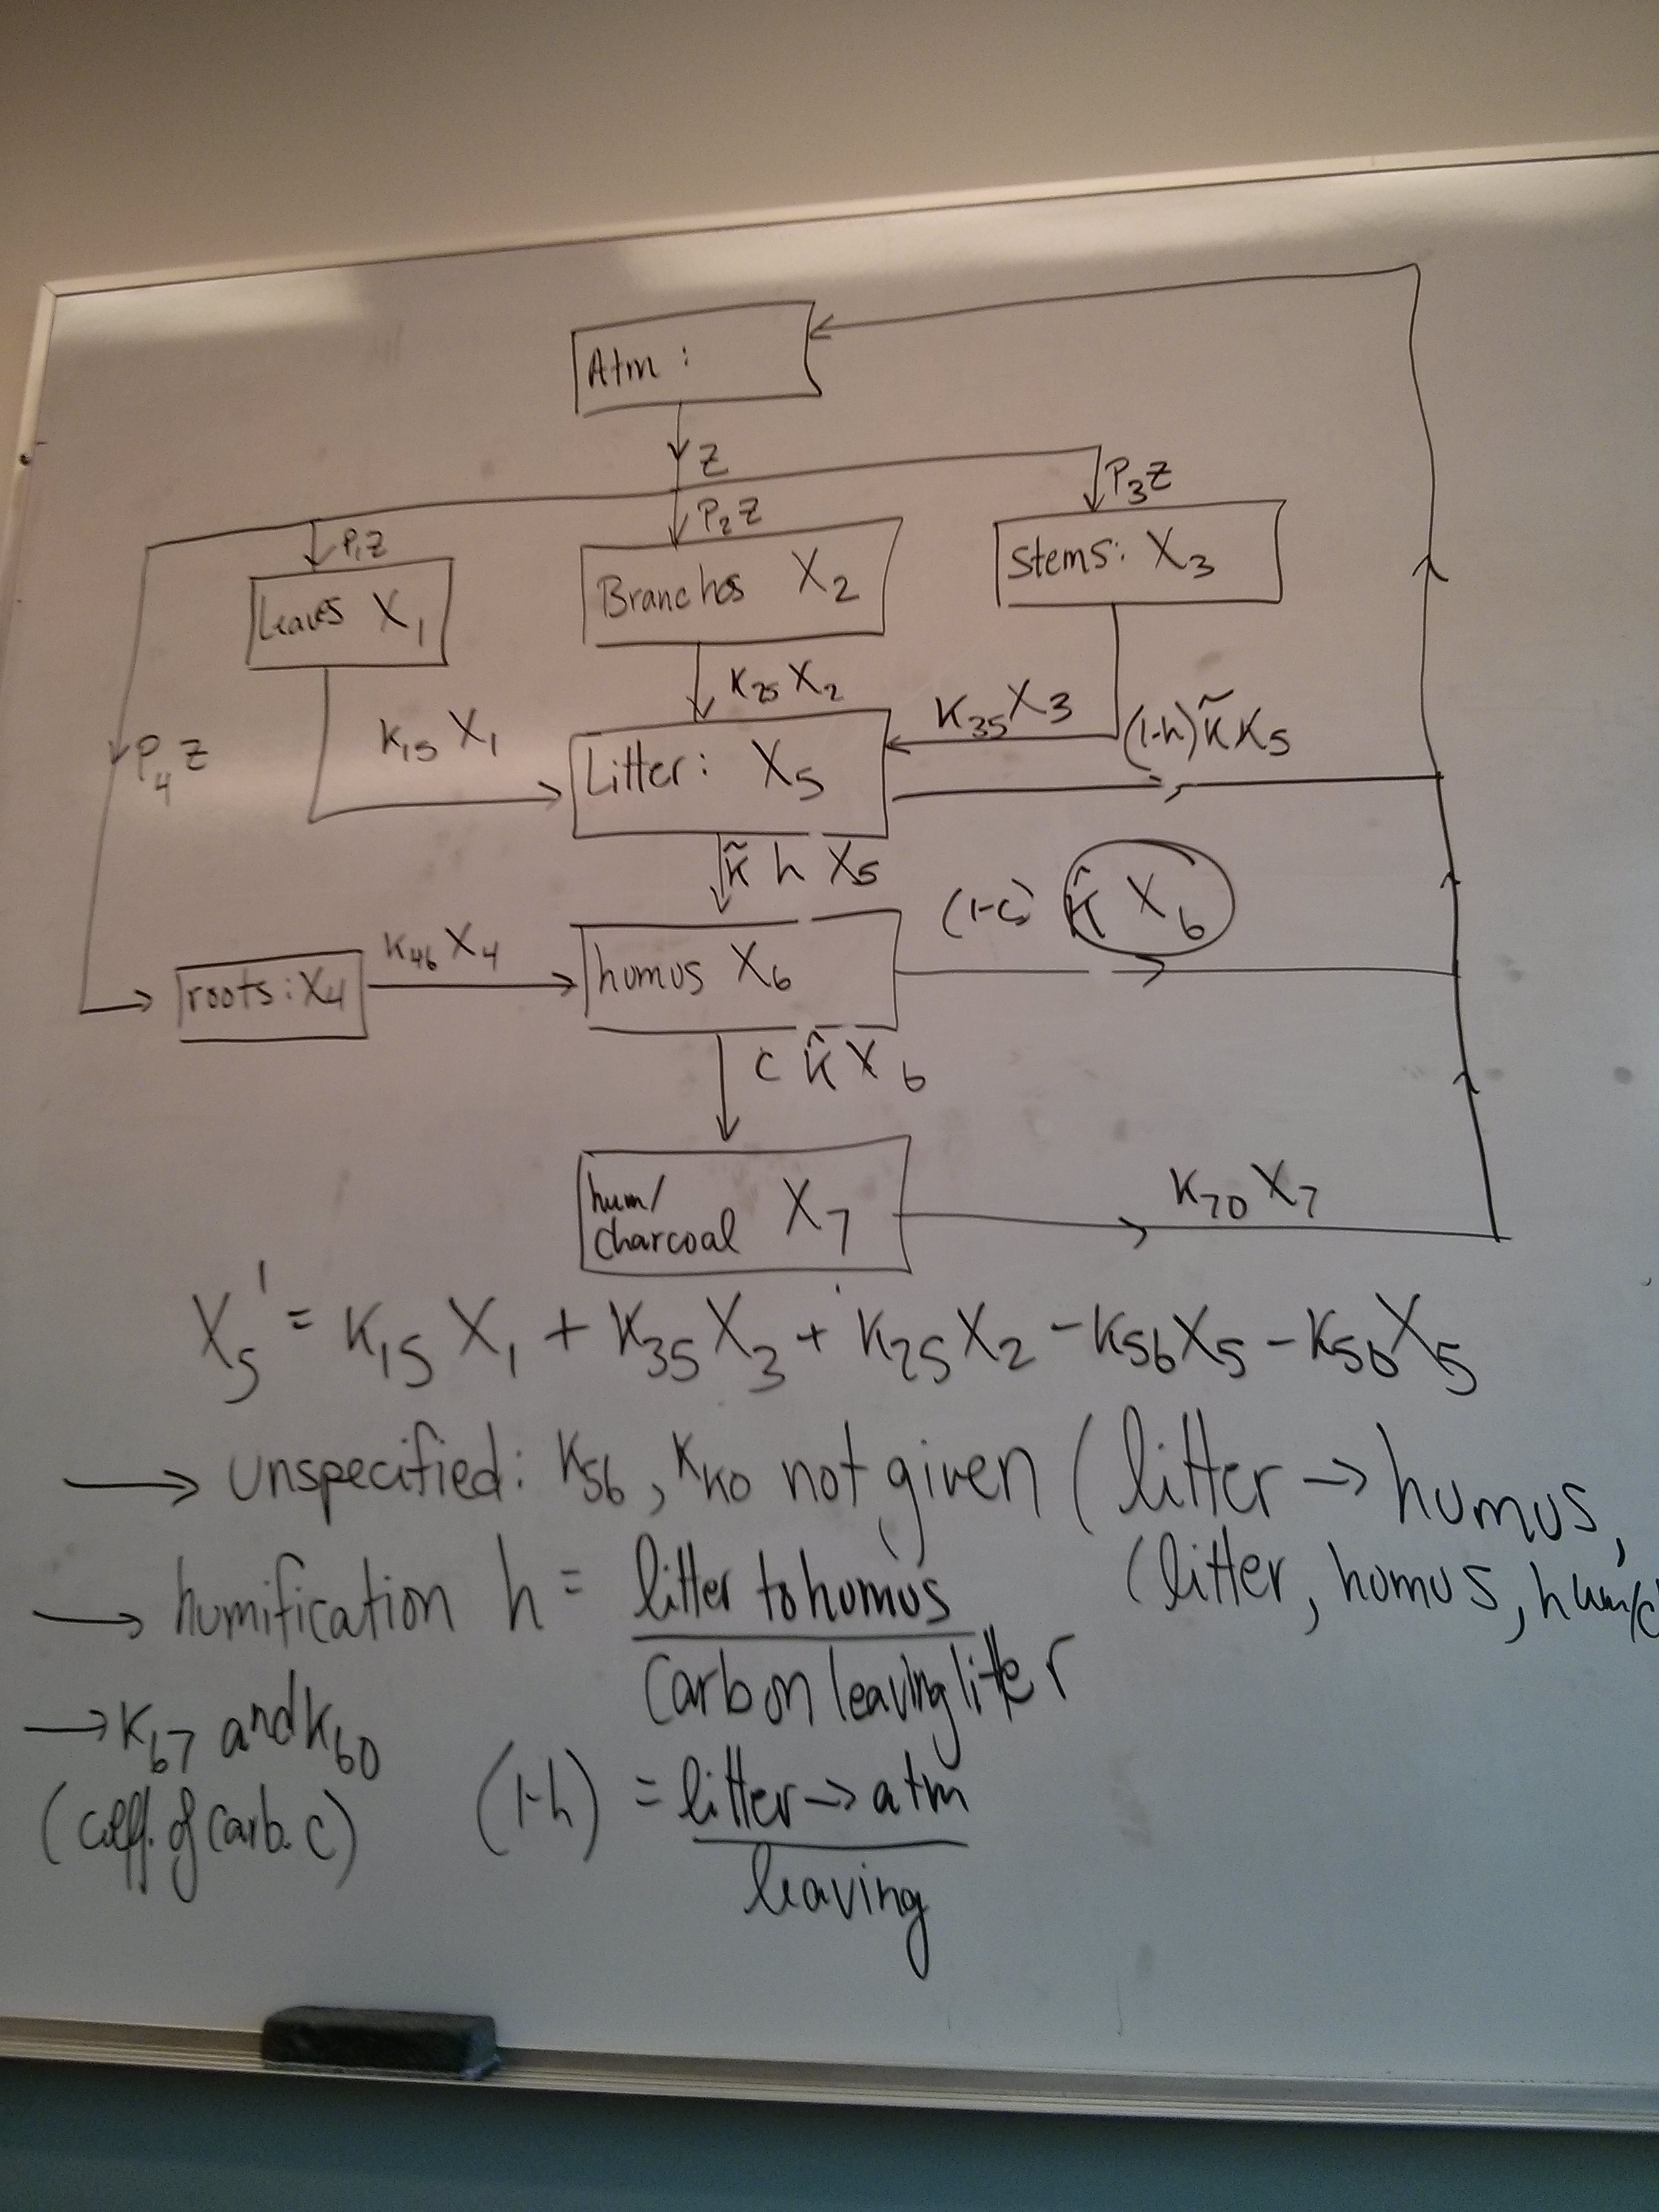 Atm :
Z
P₁Z
P₂Z
P₃Z
Leaves X₁
Branches X₂
Stems: X₃
P₄Z
K₁₅ X₁
K₂₅ X₂
K₃₅X₃
Litter: X₅
(1-h) K̃ X₅
K̃ h X₅
K₄₆ X₄
roots: X₄
humus X₆
(1-c) K̂ X₆
C K̂ X₆
hum/
charcoal X₇
K₇₀ X₇
X₅' = K₁₅ X₁ + K₃₅X₃ + K₂₅X₂ - K₅₆X₅ - K₅₀X₅
→ unspecified: K₅₆, K_K0 not given (litter → humus,
(litter, homus, hum/c
→ humification h = litter to humus
Carbon leaving litter
→ K₆₇ and K₆₀
(coeff. of carb. c)
(1-h) = litter → atm
leaving